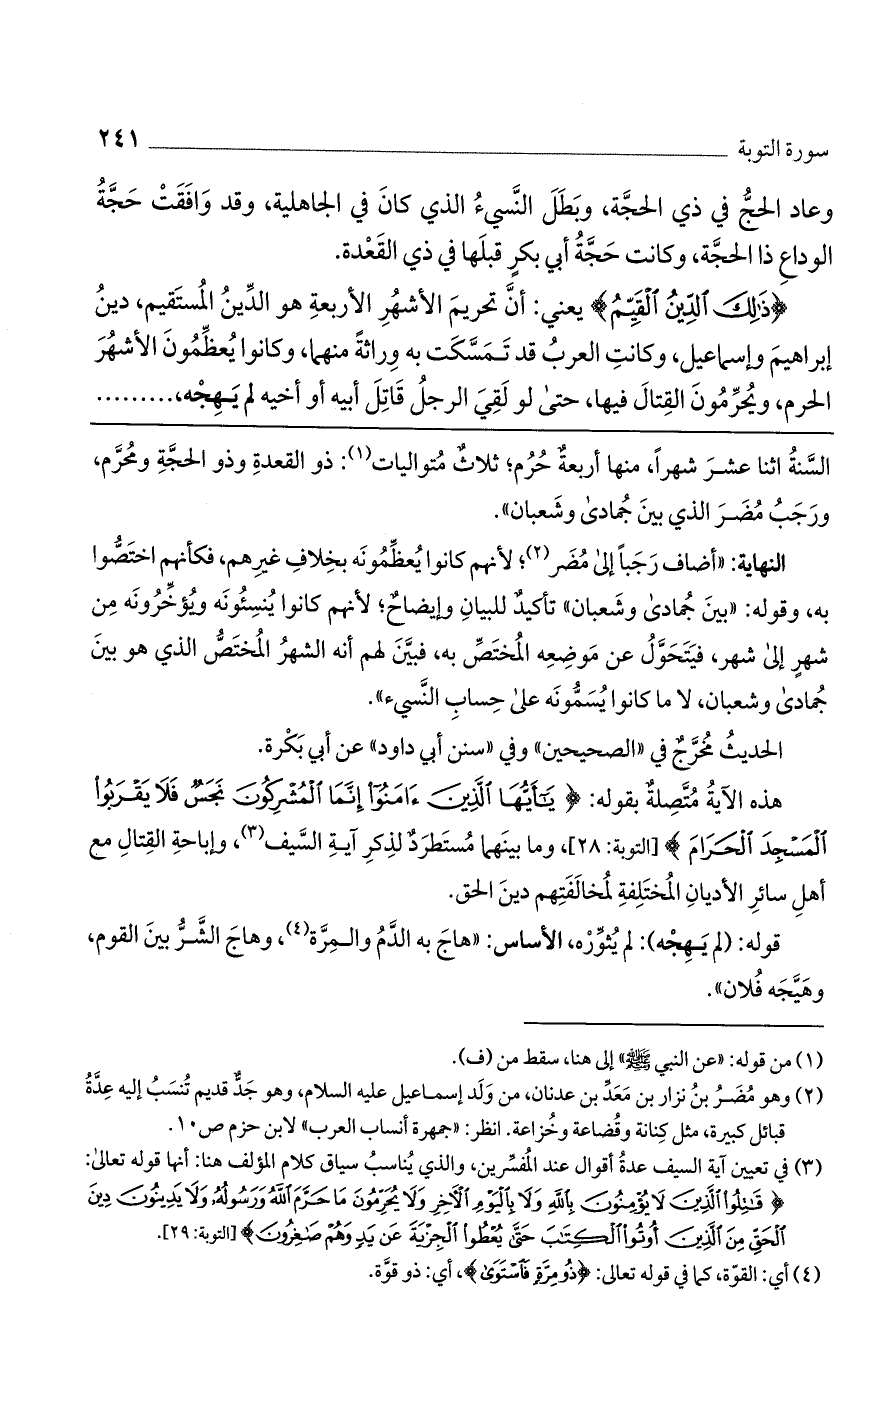 سورة التوبة ٢٤١
وعاد الحجُّ في ذي الحجَّة، وبَطَلَ النَّسيءُ الذي كانَ في الجاهلية، وقد وَافَقَتْ حَجَّةُ
الوداعِ ذا الحجَّة، وكانت حَجَّةُ أبي بكرٍ قبلَها في ذي القَعْدة.
﴿ذَٰلِكَ ٱلدِّينُ ٱلْقَيِّمُ﴾ يعني: أنَّ تحريمَ الأشهُرِ الأربعةِ هو الدِّينُ المُستَقيم، دينُ
إبراهيمَ وإسماعيل، وكانتِ العربُ قد تَـمَسَّكَت به وِراثةً منهما، وكانوا يُعظِّمُونَ الأشهُرَ
الحرم، ويُحرِّمُونَ القِتالَ فيها، حتىٰ لو لَقِيَ الرجلُ قَاتِلَ أبيه أو أخيه لم يَـهِجْه،.........
السَّنةُ اثنا عشـرَ شهراً، منها أربعةٌ حُرُم؛ ثلاثٌ مُتواليات(١): ذو القعدةِ وذو الحجَّةِ ومُحرَّم،
ورَجَبُ مُضَـرَ الذي بينَ جُمادىٰ وشَعبان».
النهاية: «أضاف رَجَباً إلىٰ مُضَر(٢)؛ لأنهم كانوا يُعظِّمُونَه بخِلافِ غيرِهم، فكأنهم اختَصُّوا
به، وقوله: «بينَ جُمادىٰ وشَعبان» تأكيدٌ للبيانِ وإيضاحٌ؛ لأنهم كانوا يُنسِئُونَه ويُؤخِّرُونَه مِن
شهرٍ إلىٰ شهر، فيَتَحَوَّلُ عن مَوضِعِه المُختَصِّ به، فبيَّنَ لهم أنه الشهرُ المُختَصُّ الذي هو بينَ
جُمادىٰ وشعبان، لا ما كانوا يُسَمُّونَه علىٰ حِسابِ النَّسيء».
الحديثُ مُخرَّجٌ في «الصحيحين» وفي «سنن أبي داود» عن أبي بَكْرة.
هذه الآيةُ مُتَّصِلةٌ بقوله: ﴿ يَـٰٓأَيُّهَا ٱلَّذِينَ ءَامَنُوٓا۟ إِنَّمَا ٱلْمُشْرِكُونَ نَجَسٌ فَلَا يَقْرَبُوا۟
ٱلْمَسْجِدَ ٱلْحَرَامَ ﴾ [التوبة: ٢٨]، وما بينَهما مُستَطرَدٌ لذِكرِ آيةِ السَّيف(٣)، وإباحةِ القِتالِ مع
أهلِ سائرِ الأديانِ المُختَلِفةِ لمُخالَفَتِهم دينَ الحق.
قوله: (لم يَـهِجْه): لم يُثوِّرْه، الأساس: «هاجَ به الدَّمُ والـمِرَّة(٤)، وهاجَ الشَّرُّ بينَ القوم،
وهَيَّجَه فُلان».
(١) من قوله: «عن النبي ﷺ» إلى هنا، سقط من (ف).
(٢) وهو مُضَـرُ بنُ نزار بن مَعَدِّ بن عدنان، من وَلَد إسمـاعيل عليه السلام، وهو جَدٌّ قديم تُنسَبُ إليه عِدَّةُ
قبائل كبيرة، مثل كِنانة وقُضاعة وخُزاعة. انظر: «جمهرة أنساب العرب» لابن حزم ص١٠.
(٣) في تعيين آية السيف عدةُ أقوال عند المُفسِّرين، والذي يُناسبُ سياق كلام المؤلف هنا: أنها قوله تعالىٰ:
﴿ قَـٰتِلُوا۟ ٱلَّذِينَ لَا يُؤْمِنُونَ بِٱللَّهِ وَلَا بِٱلْيَوْمِ ٱلْـَٔاخِرِ وَلَا يُحَرِّمُونَ مَا حَرَّمَ ٱللَّهُ وَرَسُولُهُۥ وَلَا يَدِينُونَ دِينَ
ٱلْحَقِّ مِنَ ٱلَّذِينَ أُوتُوا۟ ٱلْكِتَـٰبَ حَتَّىٰ يُعْطُوا۟ ٱلْجِزْيَةَ عَن يَدٍ وَهُمْ صَـٰغِرُونَ ﴾ [التوبة: ٢٩].
(٤) أي: القوّة، كما في قوله تعالى: ﴿ذُو مِرَّةٍ فَٱسْتَوَىٰ ﴾، أي: ذو قوَّة.